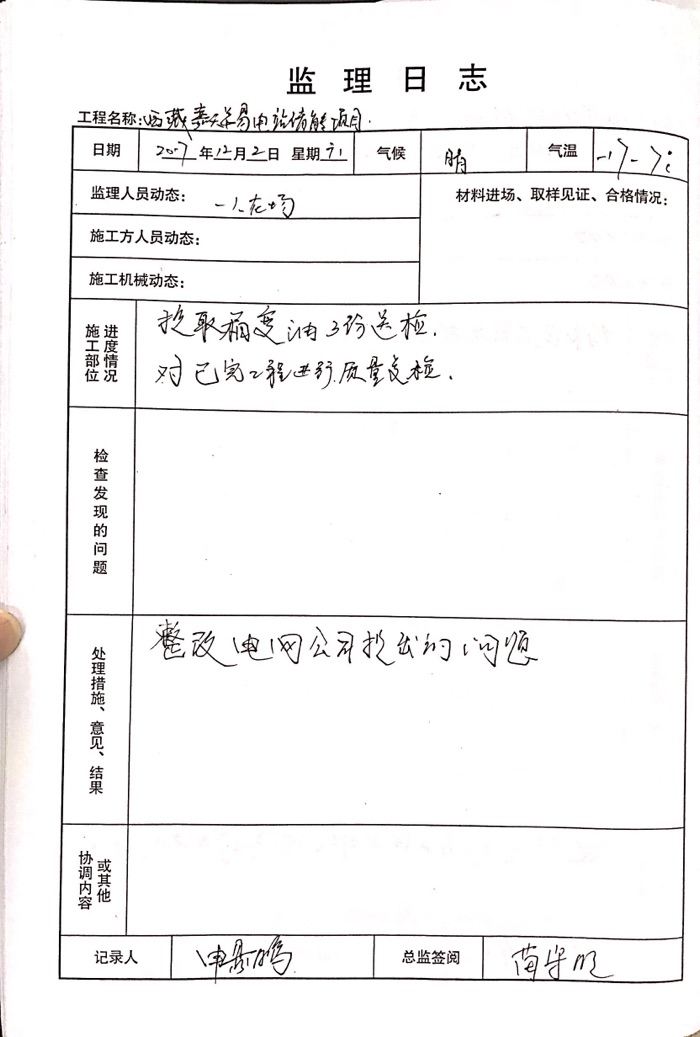 监理日志
工程名称: 西藏嘉天 易电站储能项目.
日期 年12月2日 星期六 气候 晴 气温 -17-7℃
监理人员动态: 一人在场 材料进场、取样见证、合格情况:
施工方人员动态:
施工机械动态:
进度情况
施工部位
提取 变油3份送检.
对已完工程进行质量复检.
检查发现的问题
处理措施、意见、结果
整改电网公司提出的问题
或其他
协调内容
记录人 申 鹏 总监签阅